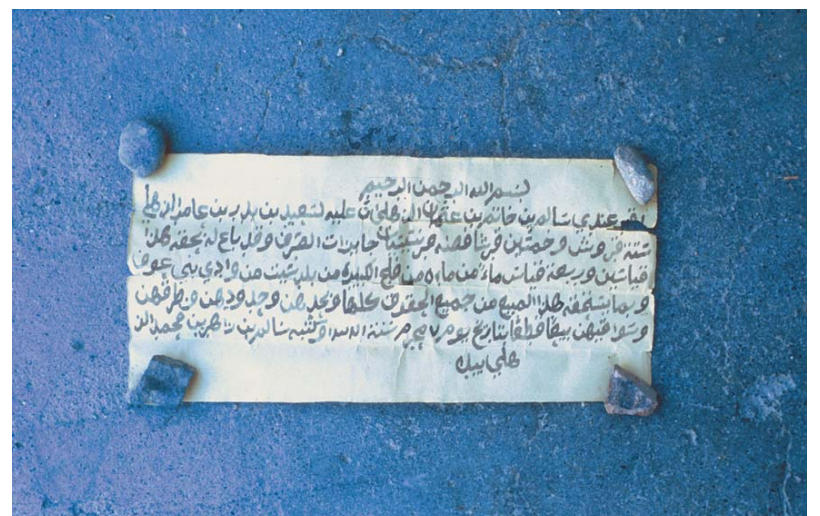 بسم الله الرحمن الرحيم
أقر عندي سالم بن خاتم بن عثمان الذهلي أن عليه لسعيد بن بدر بن عامر الذهلي
ستة قروش وخمسين قرشا فضة قرشتان جايزات الصرف وقد باع له بحقه هذا
قياسين وربعة قياس ماء من ماء من فلج الكبيرة من بلد سيت من وادي بني عوف
وبما يستحقه هذا المبيع من جميع الحقوق كلها وبحدهن وحدودهن وطرقهن
وسواقيهن بيعا قطعا بتاريخ يوم من سنة وكتبه سالم بن محمد الذ
هلي بيده